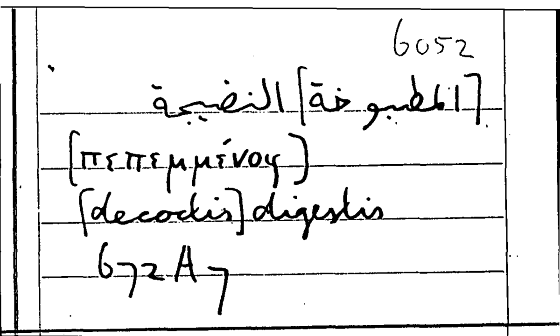 6052
[المطبوخة] النضيجة
[πεπεμμένος]
[decoctis] digestis
672A7